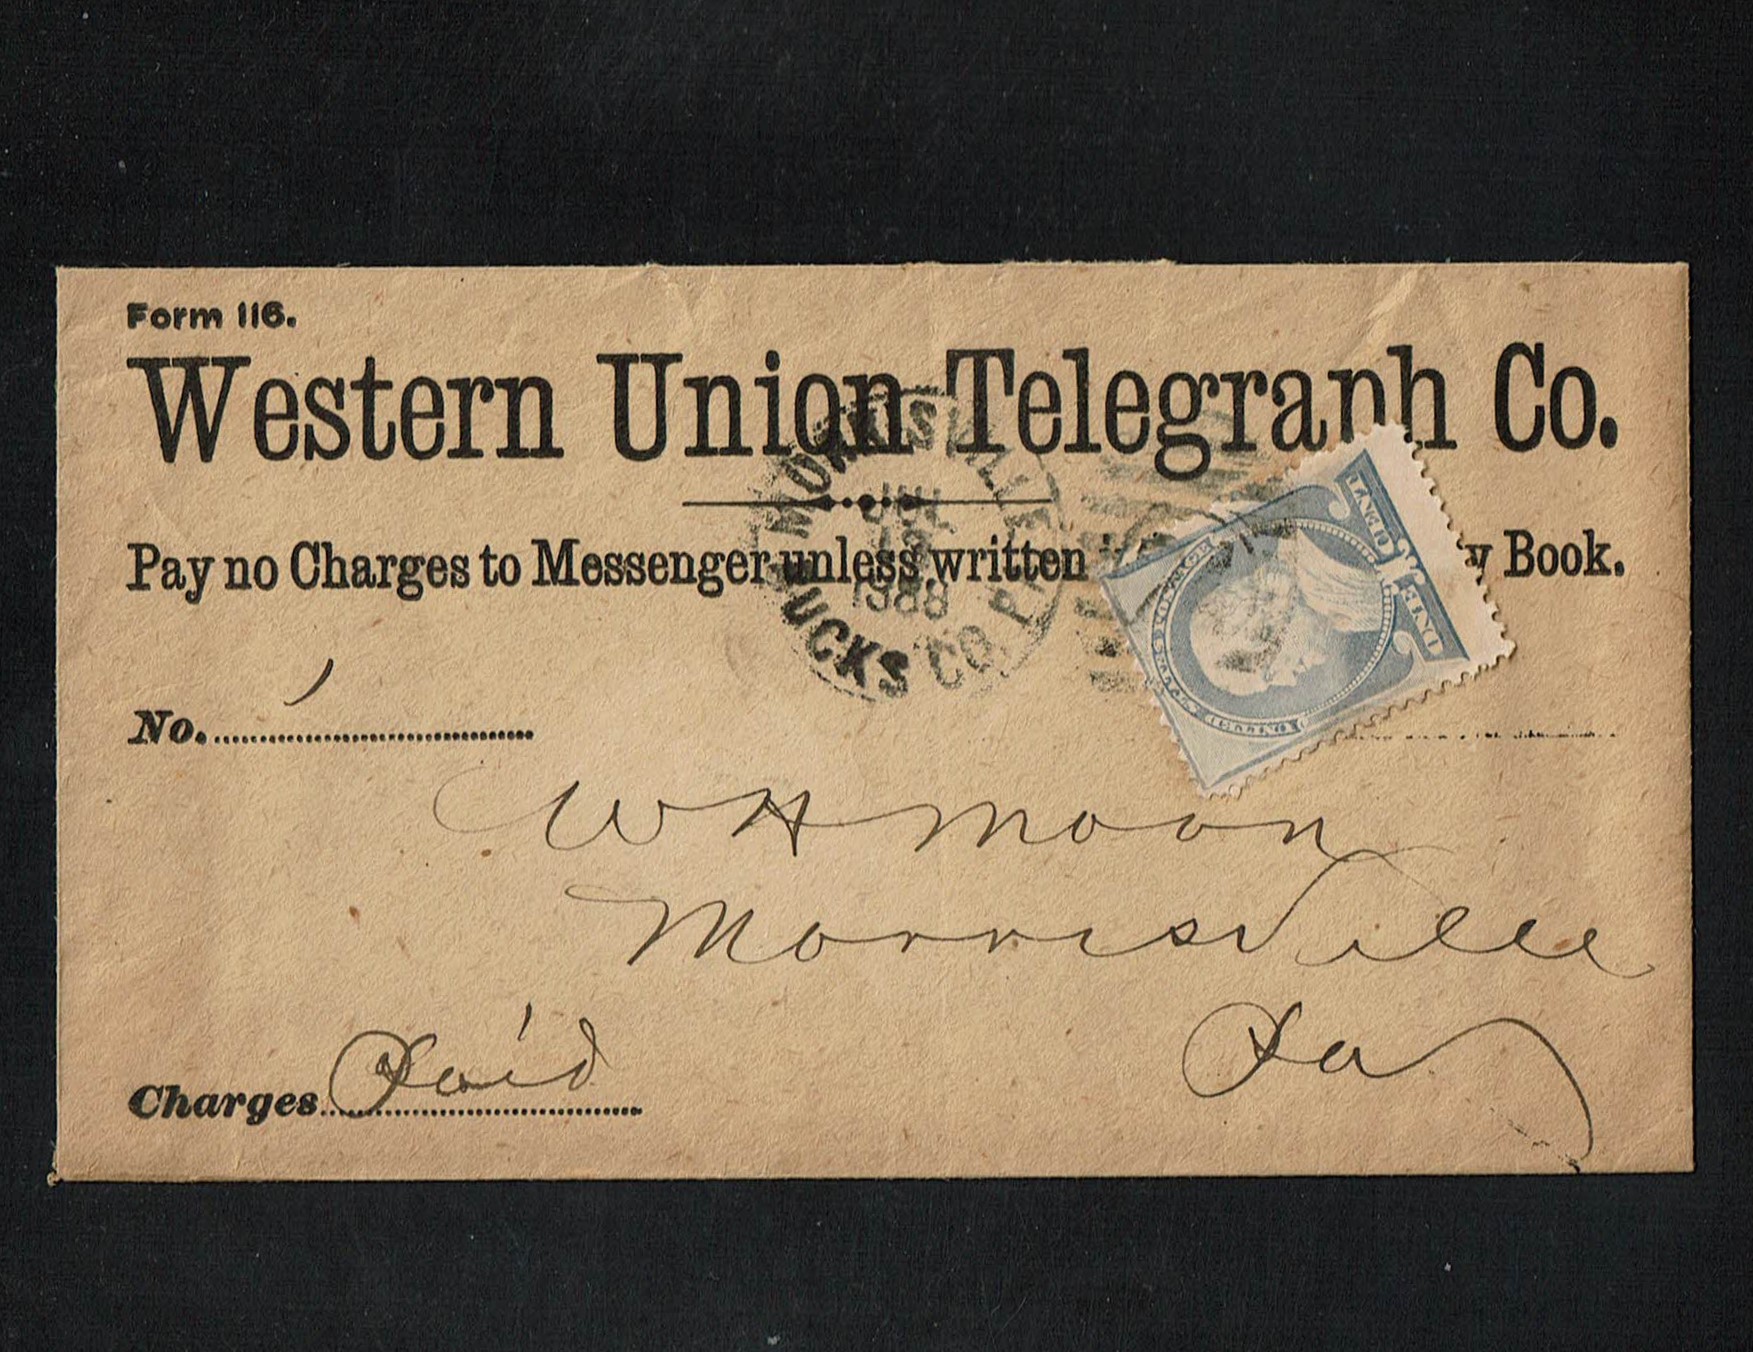 Form 116.
Western Union Telegraph Co.
Pay no Charges to Messenger unless written y Book.
MORRISVILLE
JUL
1888
BUCKS CO. PA.
ONE CENT
No. 1
W H Moon
Morrisville
Pa
Charges Paid